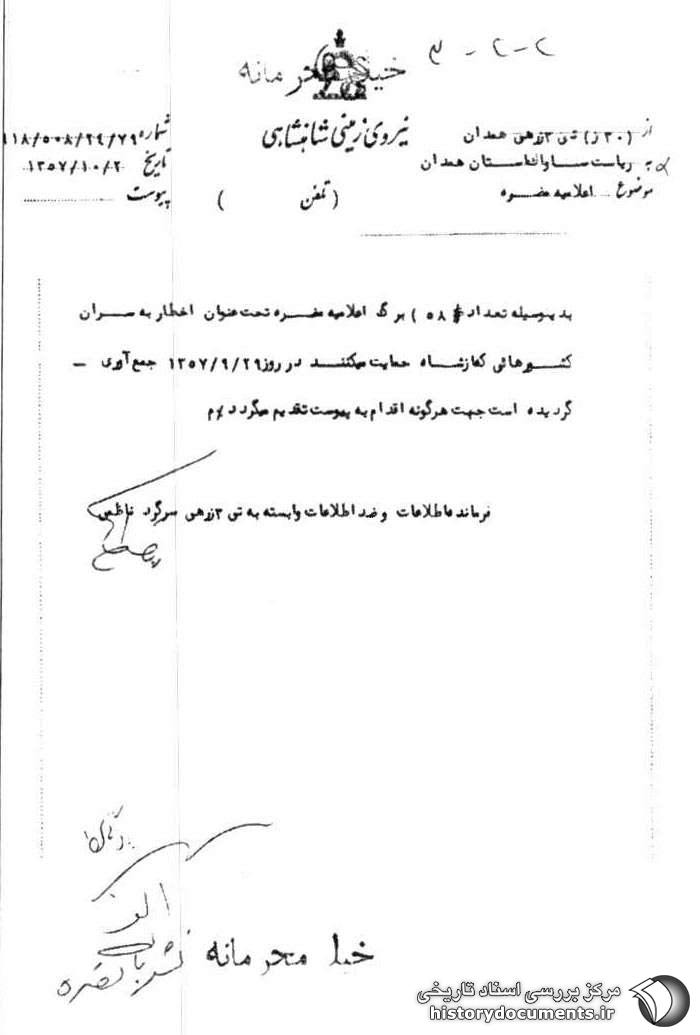 ۲-۲-۳
خیلی محرمانه
نیروی زمینی شاهنشاهی
از (۳۰ ز) تی ۳ زرهی همدان
به ریاست ساواک استان همدان
موضوع اعلامیه مضره
(تلفن )
شماره ۱۱۸/۵۰۸/۲۹/۷۹
تاریخ ۱۳۵۷/۱۰/۲
پیوست
بدینوسیله تعداد (۵۸) برگ اعلامیه مضره تحت عنوان اخطار به سران
کشورهائی که از شاه حمایت میکنند در روز ۱۳۵۷/۹/۲۹ جمع آوری -
گردیده است جهت هرگونه اقدام به پیوست تقدیم میگردد
فرمانده اطلاعات و ضد اطلاعات وابسته به تی ۳ زرهی سرگرد ناظمی
خیلی محرمانه
نشریات مضره
مرکز بررسی اسناد تاریخی
historydocuments.ir